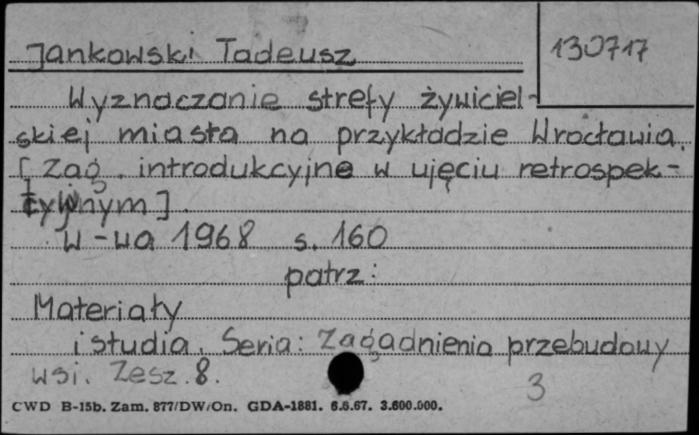 Jankowski Tadeusz
130717
Wyznaczanie strefy żywiciel-
skiej miasta na przykładzie Wrocławia.
[Zag. introdukcyjne w ujęciu retrospek-
tywnym].
W-wa 1968 s. 160
patrz:
Materiały
i studia. Seria: Zagadnienia przebudowy
wsi. Zesz. 8.
3
CWD B-15b. Zam. 877/DW/On. GDA-1881. 6.6.67. 3.600.000.